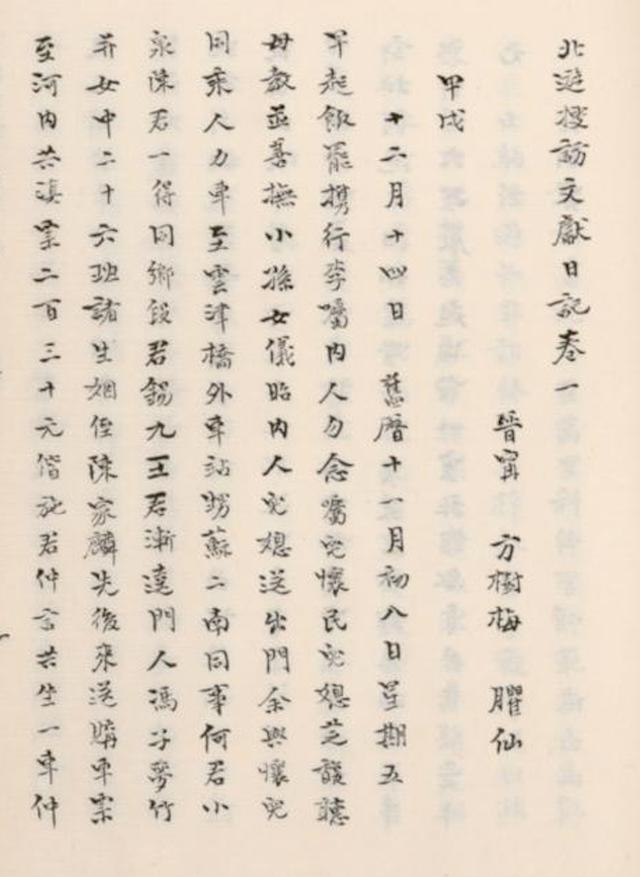 北遊搜訪文獻日記卷一
晉甯 方樹梅 臞仙
甲戌
十二月十四日舊曆十一月初八日星期五
早起飯罷携行李囑內人勿念囑兒懷民兒媳芝馥聽
母教並善撫小孫女儀昭內人兒媳送出門余與懷兒
同乘人力車至雲津橋外車站甥蘇二南同事何君小
泉陳君一得同鄉段君錫九王君漸逵門人馮子夢竹
并女中二十六班諸生姻侄陳家麟先後來送購車票
至河內共滇票二百三十元偕施君仲言共坐一車仲